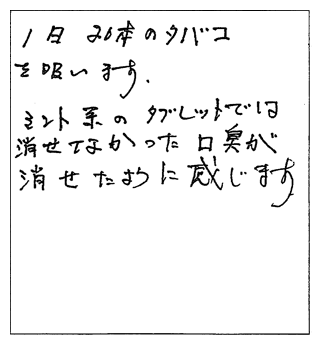 1日 20本のタバコ
を吸います.
ミント系のタブレットでは
消せてなかった口臭が
消せたように感じます